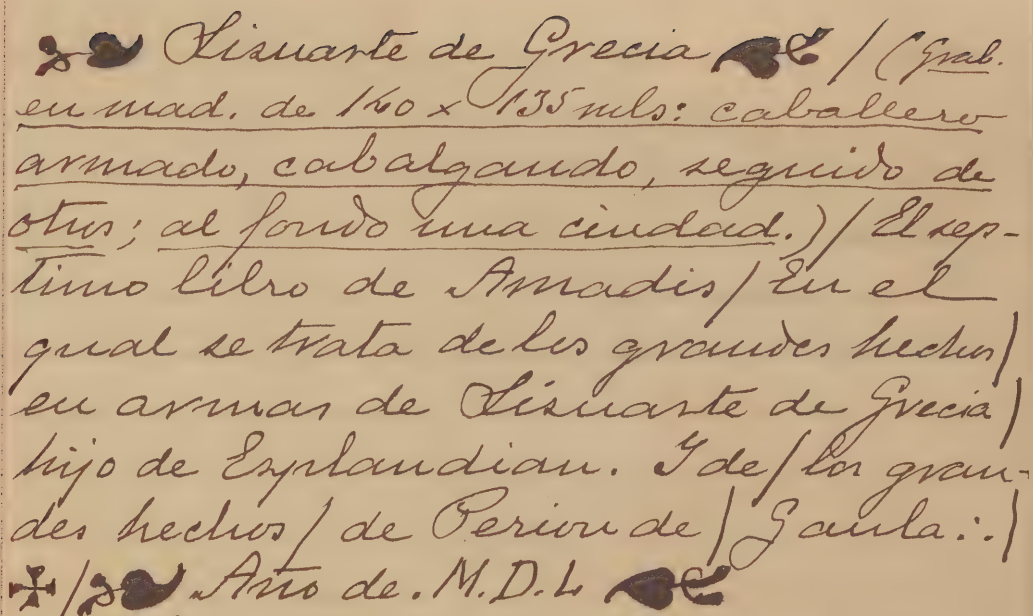 Lisuarte de Grecia / (Grab.
en mad. de 140 x 135 mls: caballero
armado, cabalgando, seguido de
otros; al fondo una ciudad.) / El sep-
timo libro de Amadis / En el
qual se trata de los grandes hechos /
en armas de Lisuarte de Grecia /
hijo de Esplandian. Y de / los gran-
des hechos / de Perion de / Gaula :. /
✠ / Año de. M.D.L